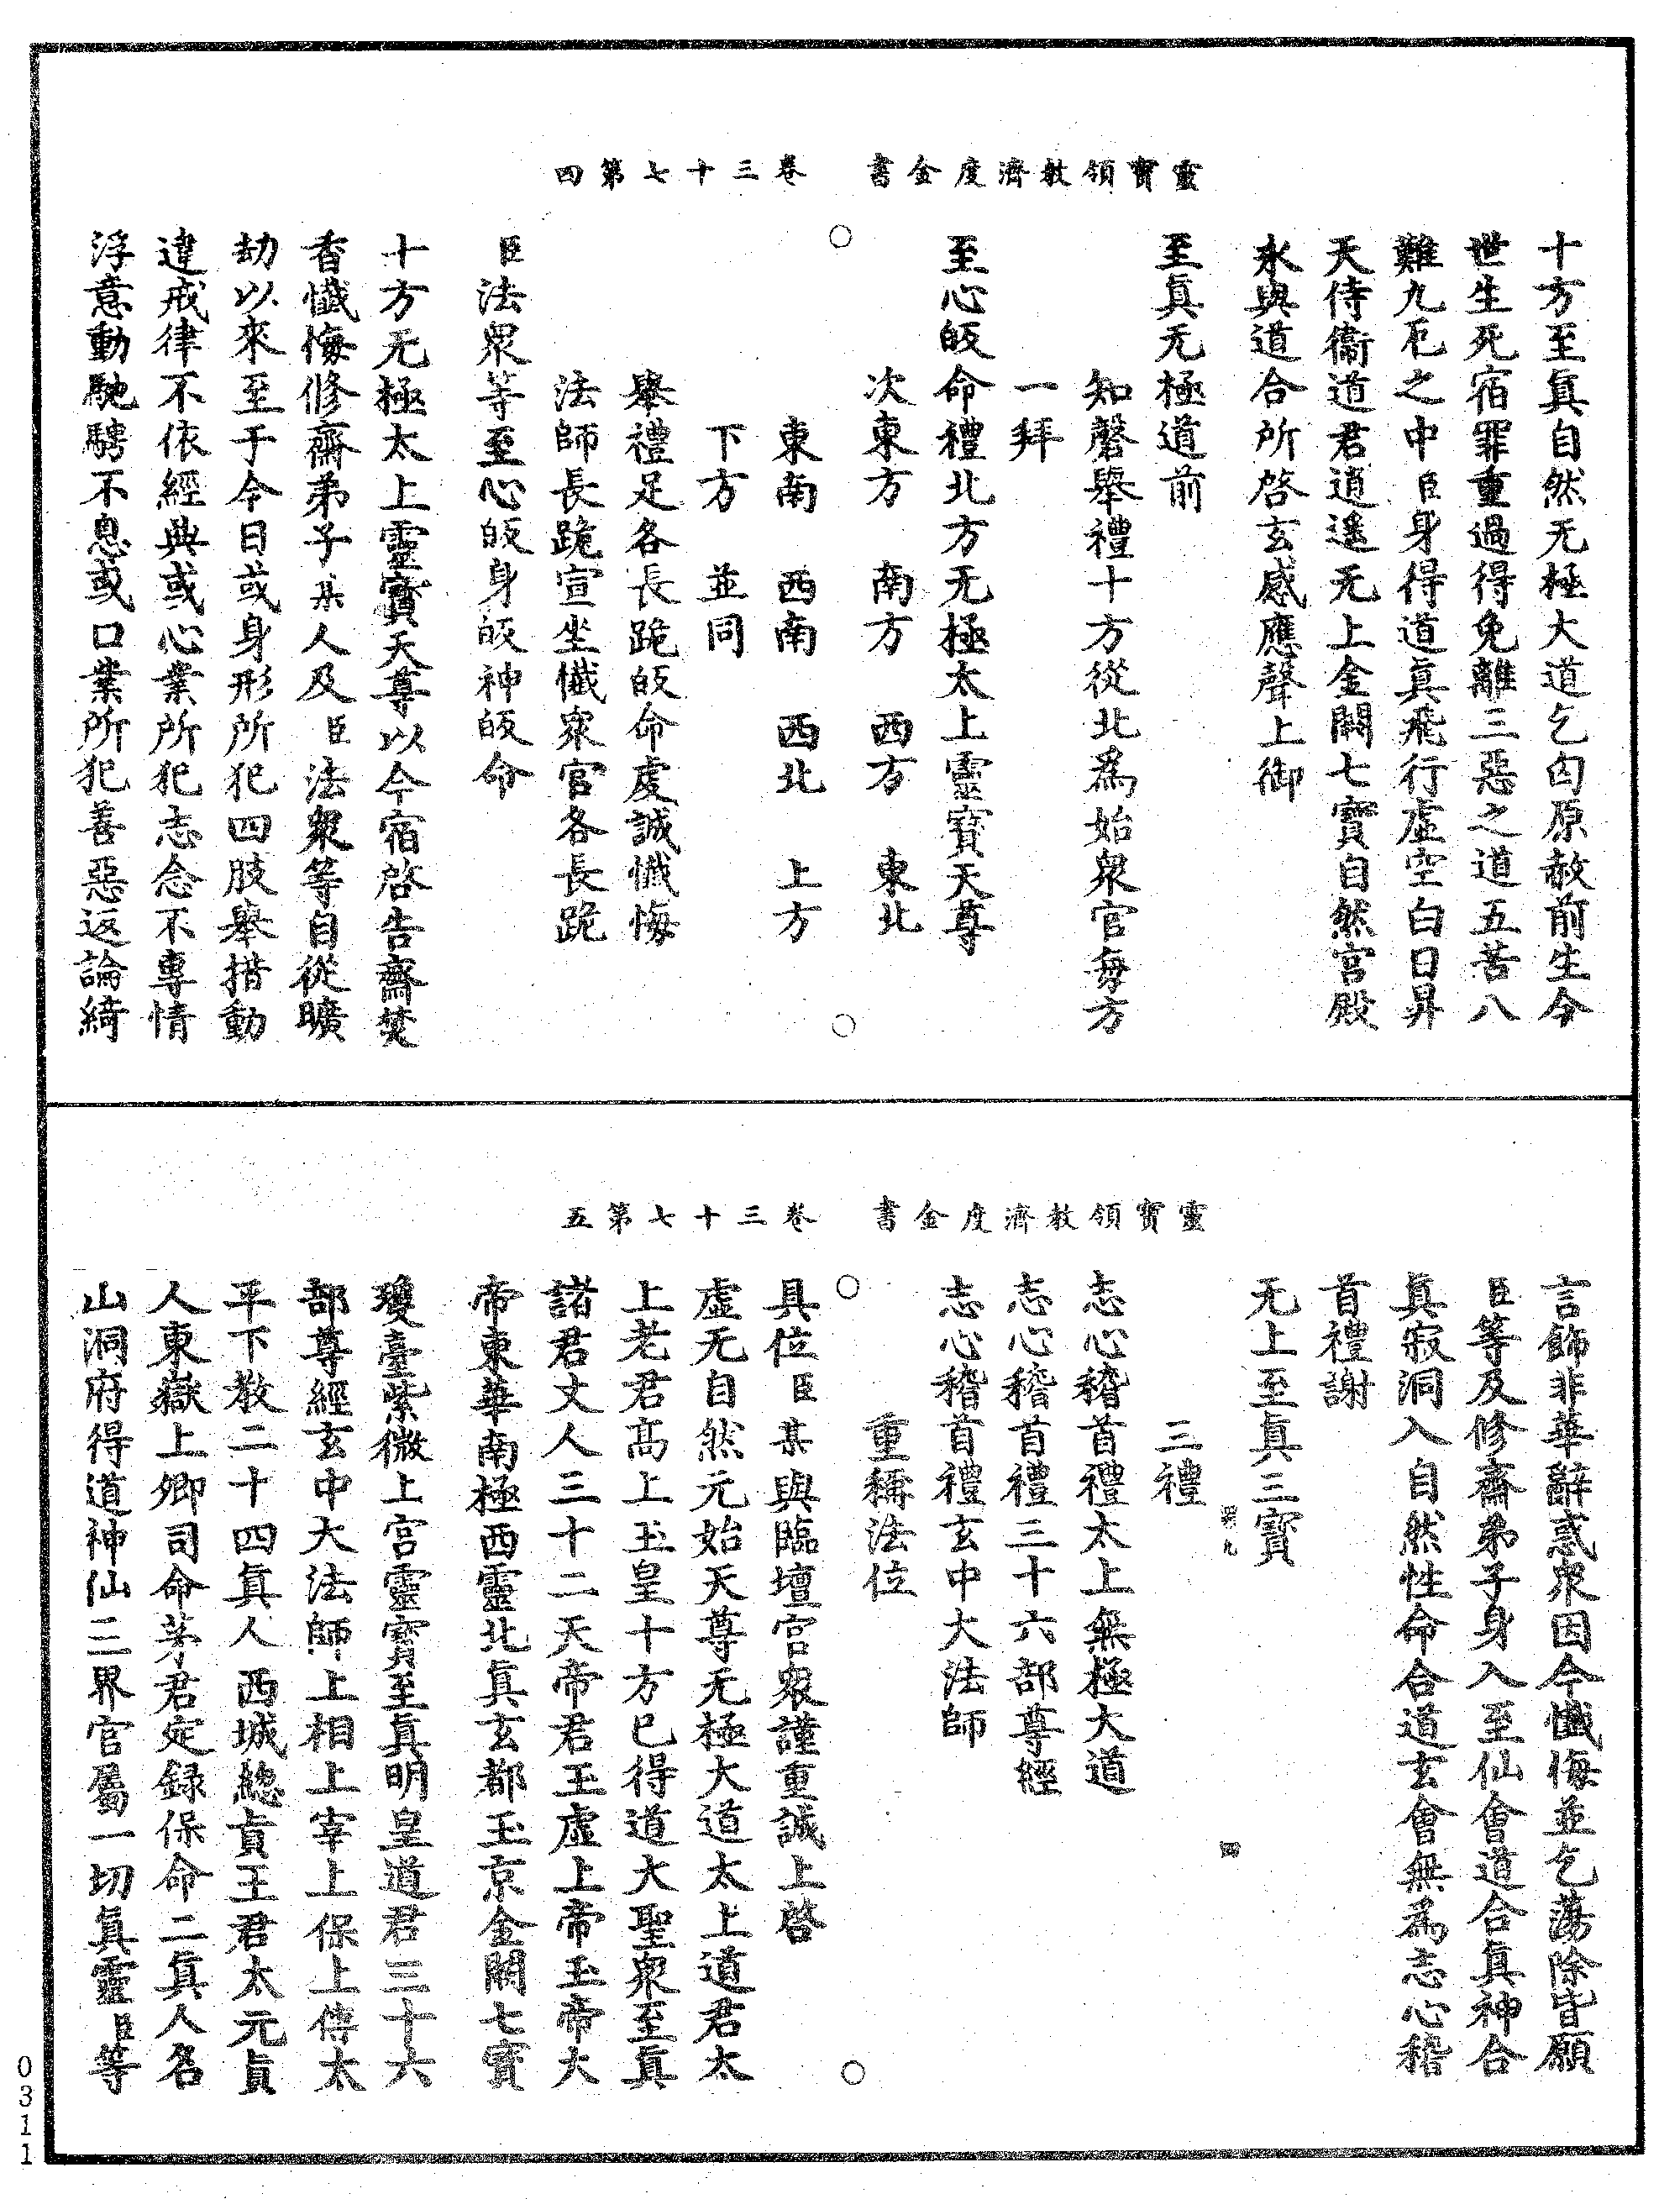 靈寶領教濟度金書　卷三十七第四
十方至眞自然无極大道乞匄原赦前生今
世生死宿罪重過得免離三惡之道五苦八
難九厄之中臣身得道眞飛行虛空白日昇
天侍衞道君逍遥无上金闕七寶自然宮殿
永與道合所啓玄感應聲上御
至眞无極道前
知磬舉禮十方從北爲始衆官每方
一拜
至心皈命禮北方无極太上靈寶天尊
次東方　南方　西方　東北
東南　西南　西北　上方
下方　並同
舉禮足各長跪皈命虔誠懺悔
法師長跪宣坐懺衆官各長跪
臣法衆等至心皈身皈神皈命
十方无極太上靈寶天尊以今宿啓告齋焚
香懺悔修齋弟子某人及臣法衆等自從曠
劫以來至于今日或身形所犯四肢舉措動
違戒律不依經典或心業所犯志念不專情
浮意動馳騁不息或口業所犯善惡返論綺
靈寶領教濟度金書　卷三十七第五
言飾非華辭惑衆因今懺悔並乞蕩除皆願
臣等及修齋弟子身入至仙會道合眞神合
眞寂洞入自然性命合道玄會無爲志心稽
首禮謝
无上至眞三寶
三禮
志心稽首禮太上無極大道
志心稽首禮三十六部尊經
志心稽首禮玄中大法師
重稱法位
具位臣某與臨壇官衆謹重誠上啓
虛无自然元始天尊无極大道太上道君太
上老君高上玉皇十方已得道大聖衆至眞
諸君丈人三十二天帝君玉虛上帝玉帝大
帝東華南極西靈北眞玄都玉京金闕七寶
瓊臺紫微上宮靈寶至眞明皇道君三十六
部尊經玄中大法師上相上宰上保上傳太
平下教二十四眞人西城總眞王君太元眞
人東嶽上卿司命茅君定録保命二眞人名
山洞府得道神仙三界官屬一切眞靈臣等
四
0311